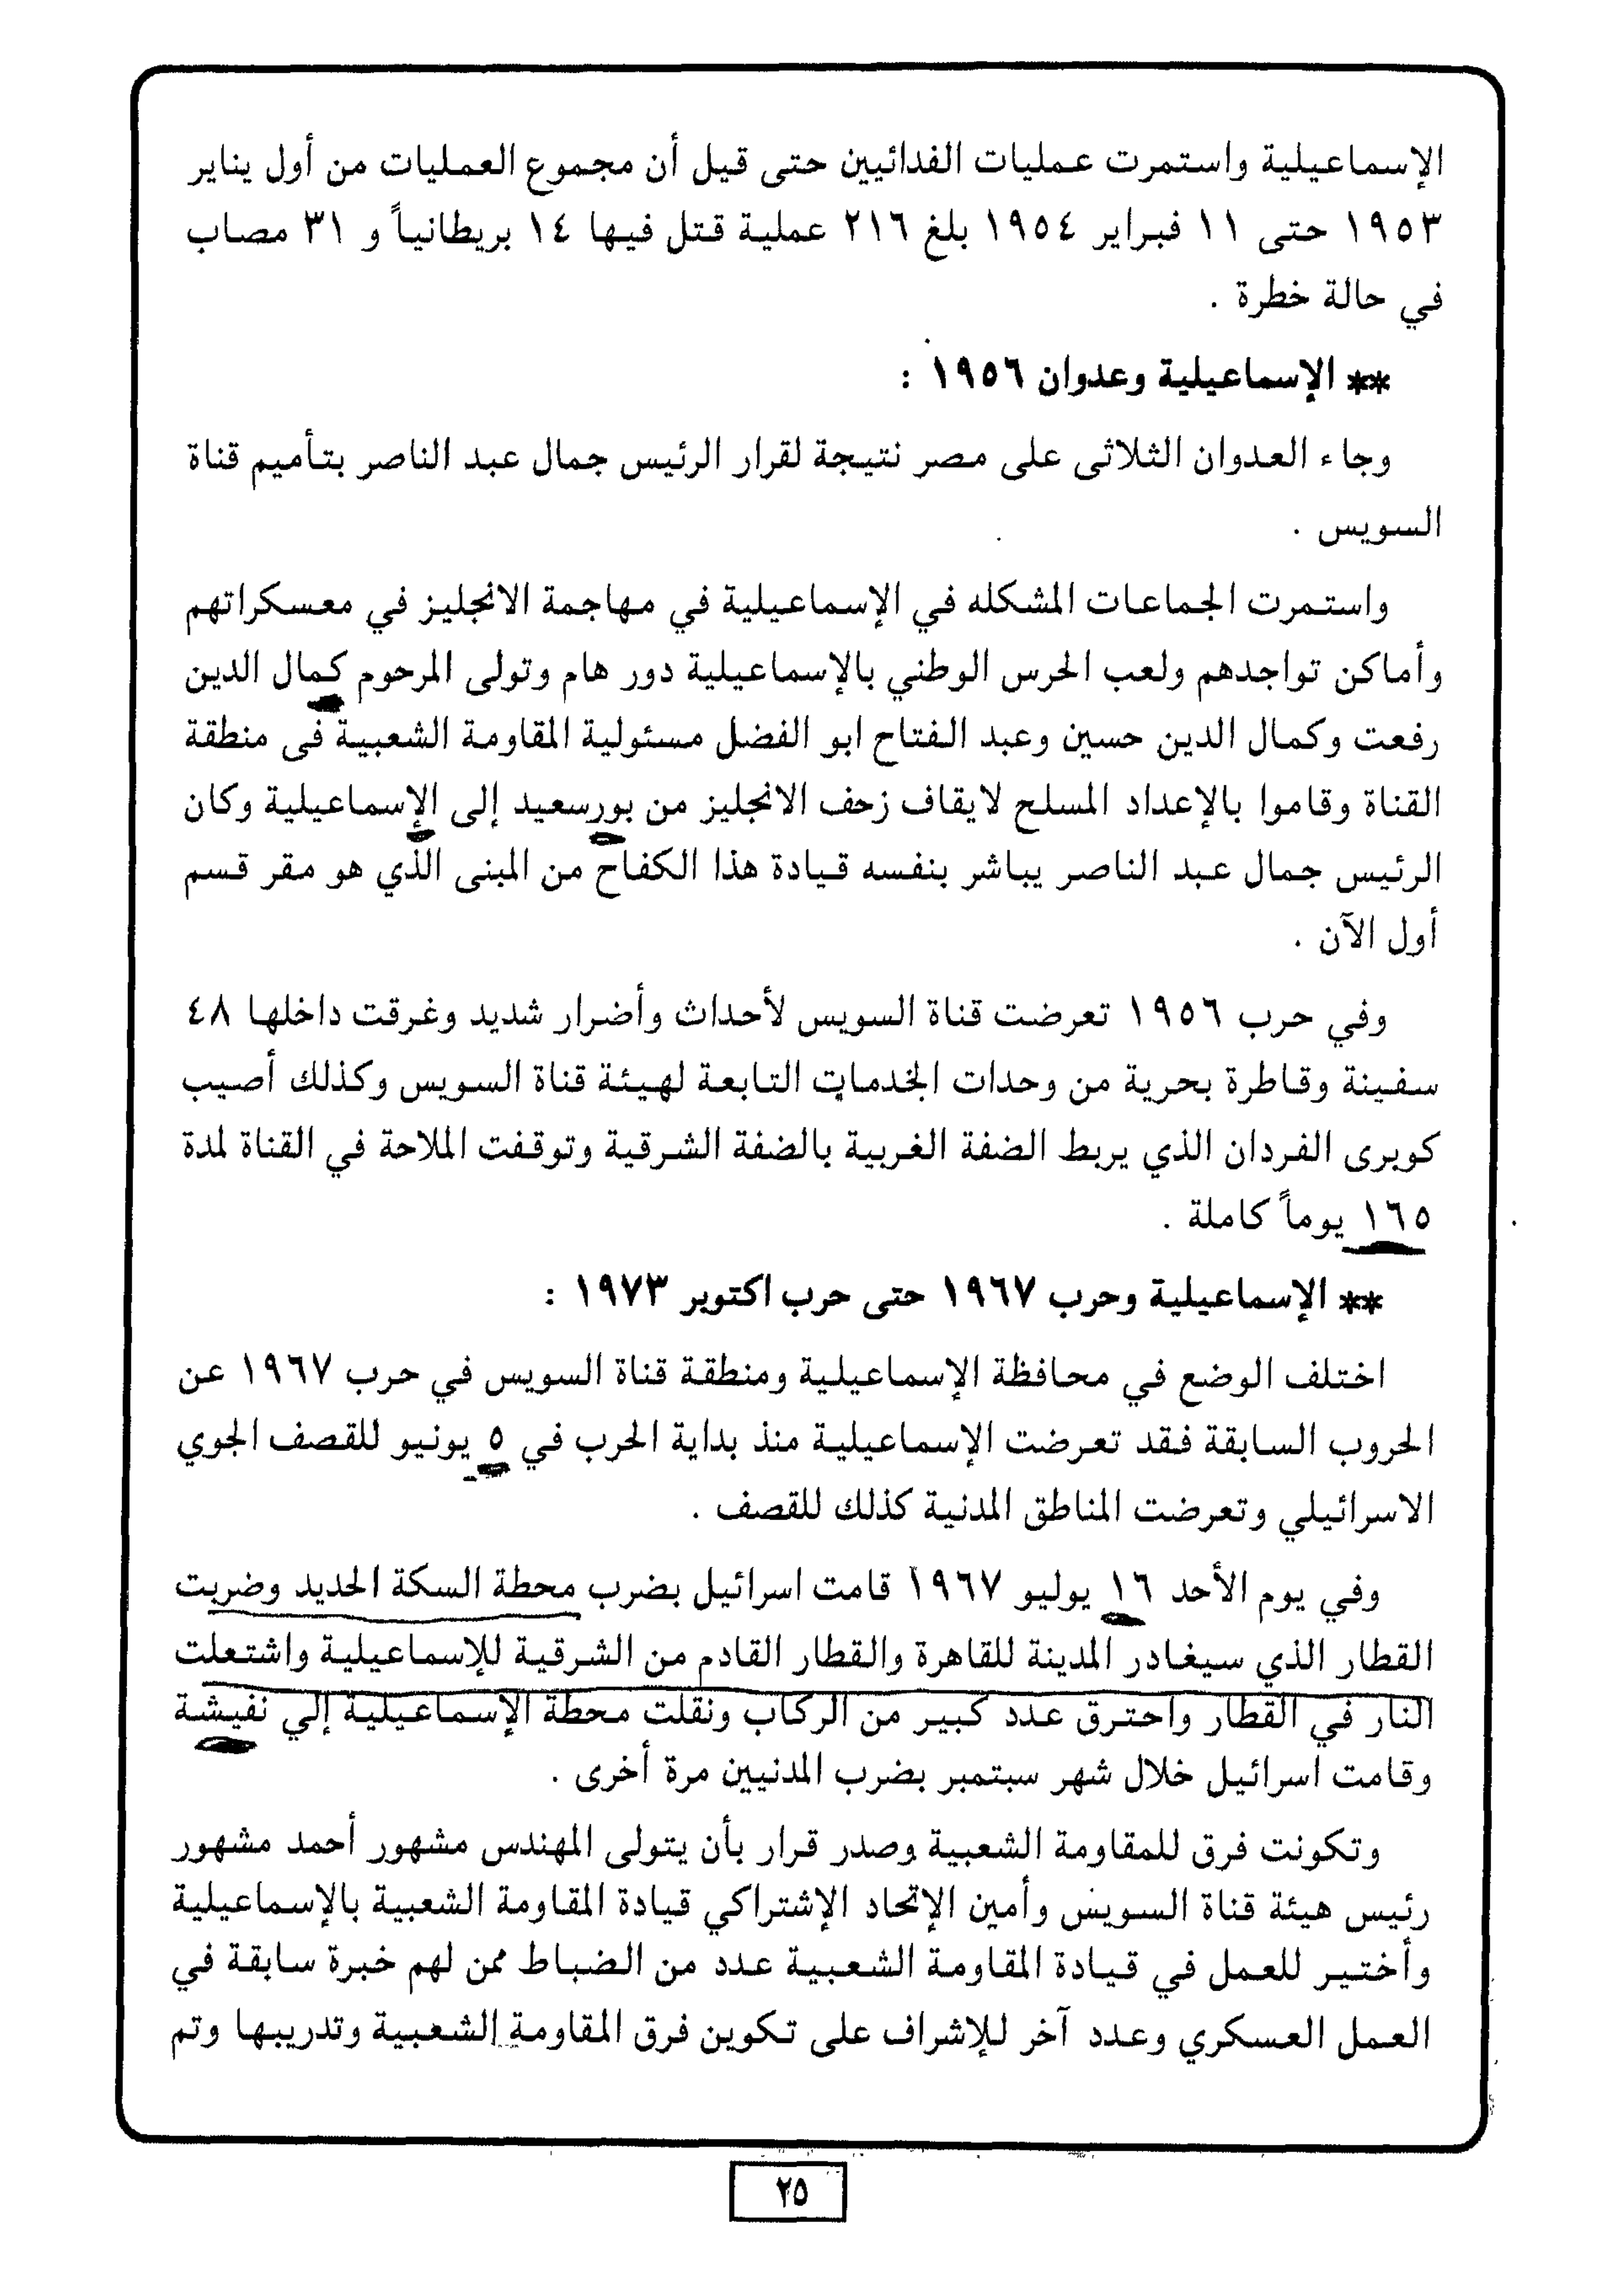 الإسماعيلية واستمرت عمليات الفدائيين حتى قيل أن مجموع العمليات من أول يناير
١٩٥٣ حتى ١١ فبراير ١٩٥٤ بلغ ٢١٦ عملية قتل فيها ١٤ بريطانياً و ٣١ مصاب
في حالة خطرة .
** الإسماعيلية وعدوان ١٩٥٦ :
وجاء العدوان الثلاثى على مصر نتيجة لقرار الرئيس جمال عبد الناصر بتأميم قناة
السويس .
واستمرت الجماعات المشكله في الإسماعيلية في مهاجمة الانجليز في معسكراتهم
وأماكن تواجدهم ولعب الحرس الوطني بالإسماعيلية دور هام وتولى المرحوم كمال الدين
رفعت وكمال الدين حسين وعبد الفتاح ابو الفضل مسئولية المقاومة الشعبية فى منطقة
القناة وقاموا بالإعداد المسلح لايقاف زحف الانجليز من بورسعيد إلى الإسماعيلية وكان
الرئيس جمال عبد الناصر يباشر بنفسه قيادة هذا الكفاح من المبنى الذي هو مقر قسم
أول الآن .
وفي حرب ١٩٥٦ تعرضت قناة السويس لأحداث وأضرار شديد وغرقت داخلها ٤٨
سفينة وقاطرة بحرية من وحدات الخدمات التابعة لهيئة قناة السويس وكذلك أصيب
كوبرى الفردان الذي يربط الضفة الغربية بالضفة الشرقية وتوقفت الملاحة في القناة لمدة
١٦٥ يوماً كاملة .
** الإسماعيلية وحرب ١٩٦٧ حتى حرب اكتوبر ١٩٧٣ :
اختلف الوضع في محافظة الإسماعيلية ومنطقة قناة السويس في حرب ١٩٦٧ عن
الحروب السابقة فقد تعرضت الإسماعيلية منذ بداية الحرب في ٥ يونيو للقصف الجوي
الاسرائيلي وتعرضت المناطق المدنية كذلك للقصف .
وفي يوم الأحد ١٦ يوليو ١٩٦٧ قامت اسرائيل بضرب محطة السكة الحديد وضربت
القطار الذي سيغادر المدينة للقاهرة والقطار القادم من الشرقية للإسماعيلية واشتعلت
النار في القطار واحترق عدد كبير من الركاب ونقلت محطة الإسماعيلية إلي نفيشة
وقامت اسرائيل خلال شهر سبتمبر بضرب المدنيين مرة أخرى .
وتكونت فرق للمقاومة الشعبية وصدر قرار بأن يتولى المهندس مشهور أحمد مشهور
رئيس هيئة قناة السويس وأمين الإتحاد الإشتراكي قيادة المقاومة الشعبية بالإسماعيلية
وأختير للعمل في قيادة المقاومة الشعبية عدد من الضباط ممن لهم خبرة سابقة في
العمل العسكري وعدد آخر للإشراف على تكوين فرق المقاومة الشعبية وتدريبها وتم
٢٥